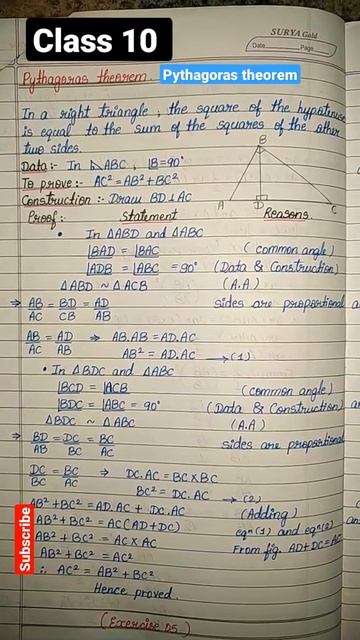 Class 10
SURYA Gold
Date Page
Pythagoras theorem Pythagoras theorem
In a right triangle, the square of the hypotenuse
is equal to the sum of the squares of the other
two sides.
B
Data:- In ⊿ABC, ∠B=90°
To prove:- AC² = AB² + BC²
Construction:- Draw BD ⊥ AC
A D C
Proof:- Statement Reasons.
• In ΔABD and ΔABC
∠BAD = ∠BAC (common angle)
∠ADB = ∠ABC = 90° (Data & Construction)
ΔABD ~ ΔACB (A.A)
⇒ AB/AC = BD/CB = AD/AB sides are proportional
AB/AC = AD/AB ⇒ AB.AB = AD.AC
AB² = AD.AC → (1)
• In ΔBDC and ΔABC
∠BCD = ∠ACB (common angle)
∠BDC = ∠ABC = 90° (Data & Construction)
ΔBDC ~ ΔABC (A.A)
⇒ BD/AB = DC/BC = BC/AC sides are proportional
DC/BC = BC/AC ⇒ DC.AC = BC×BC
BC² = DC.AC → (2)
AB² + BC² = AD.AC + DC.AC (Adding)
AB² + BC² = AC(AD+DC) eqⁿ(1) and eqⁿ(2)
AB² + BC² = AC × AC From fig. AD+DC=AC
AB² + BC² = AC²
∴ AC² = AB² + BC²
Hence proved
(Exercise 05)
Subscribe